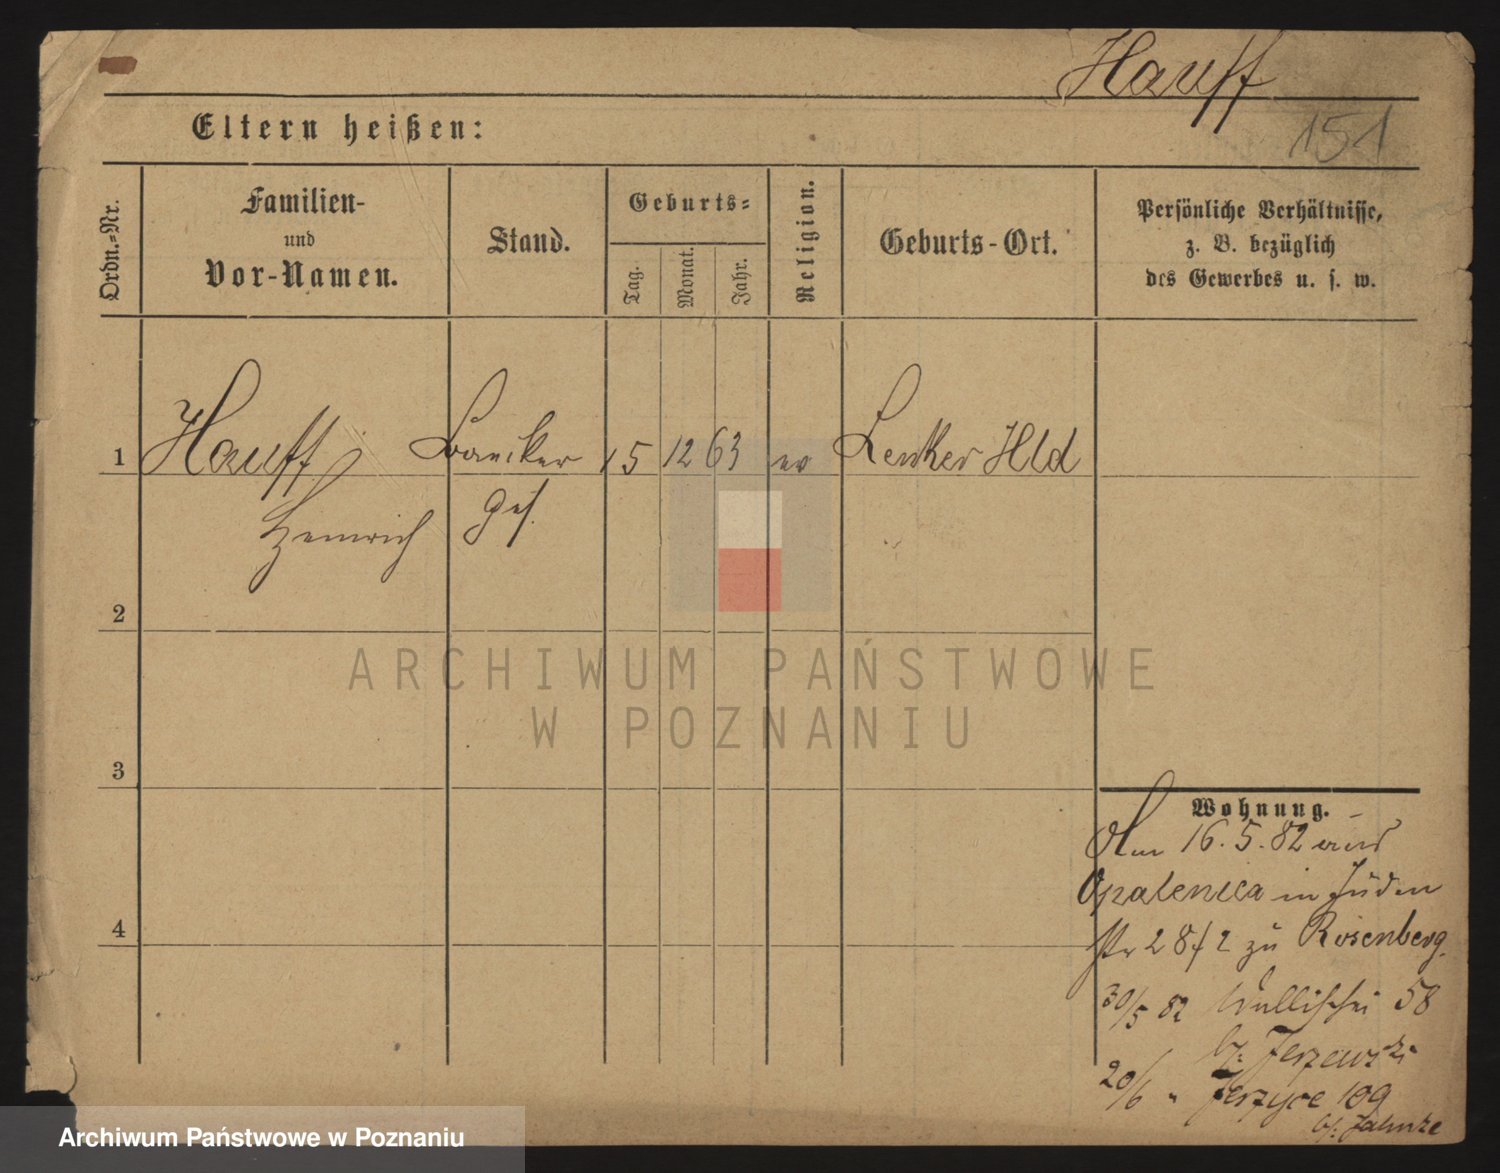 Hauff
151
Eltern heißen:
Ordn.-Nr.
Familien-
und
Vor-Namen.
Stand.
Geburts-
Tag.
Monat.
Jahr.
Religion.
Geburts-Ort.
Persönliche Verhältnisse,
z. B. bezüglich
des Gewerbes u. s. w.
1 Hauff 15 12 63 ev Lenker Hld
Heinrich ges.
2
3
4
Wohnung.
Am 16.5.82 aus
Opalenica in Juden
str 28/2 zu Rosenberg
30/5 82 Wallischei 58
b/. Jerzewski
20/6 " Jerzyce 109
b/. Jahnke
ARCHIWUM PAŃSTWOWE
W POZNANIU
Archiwum Państwowe w Poznaniu